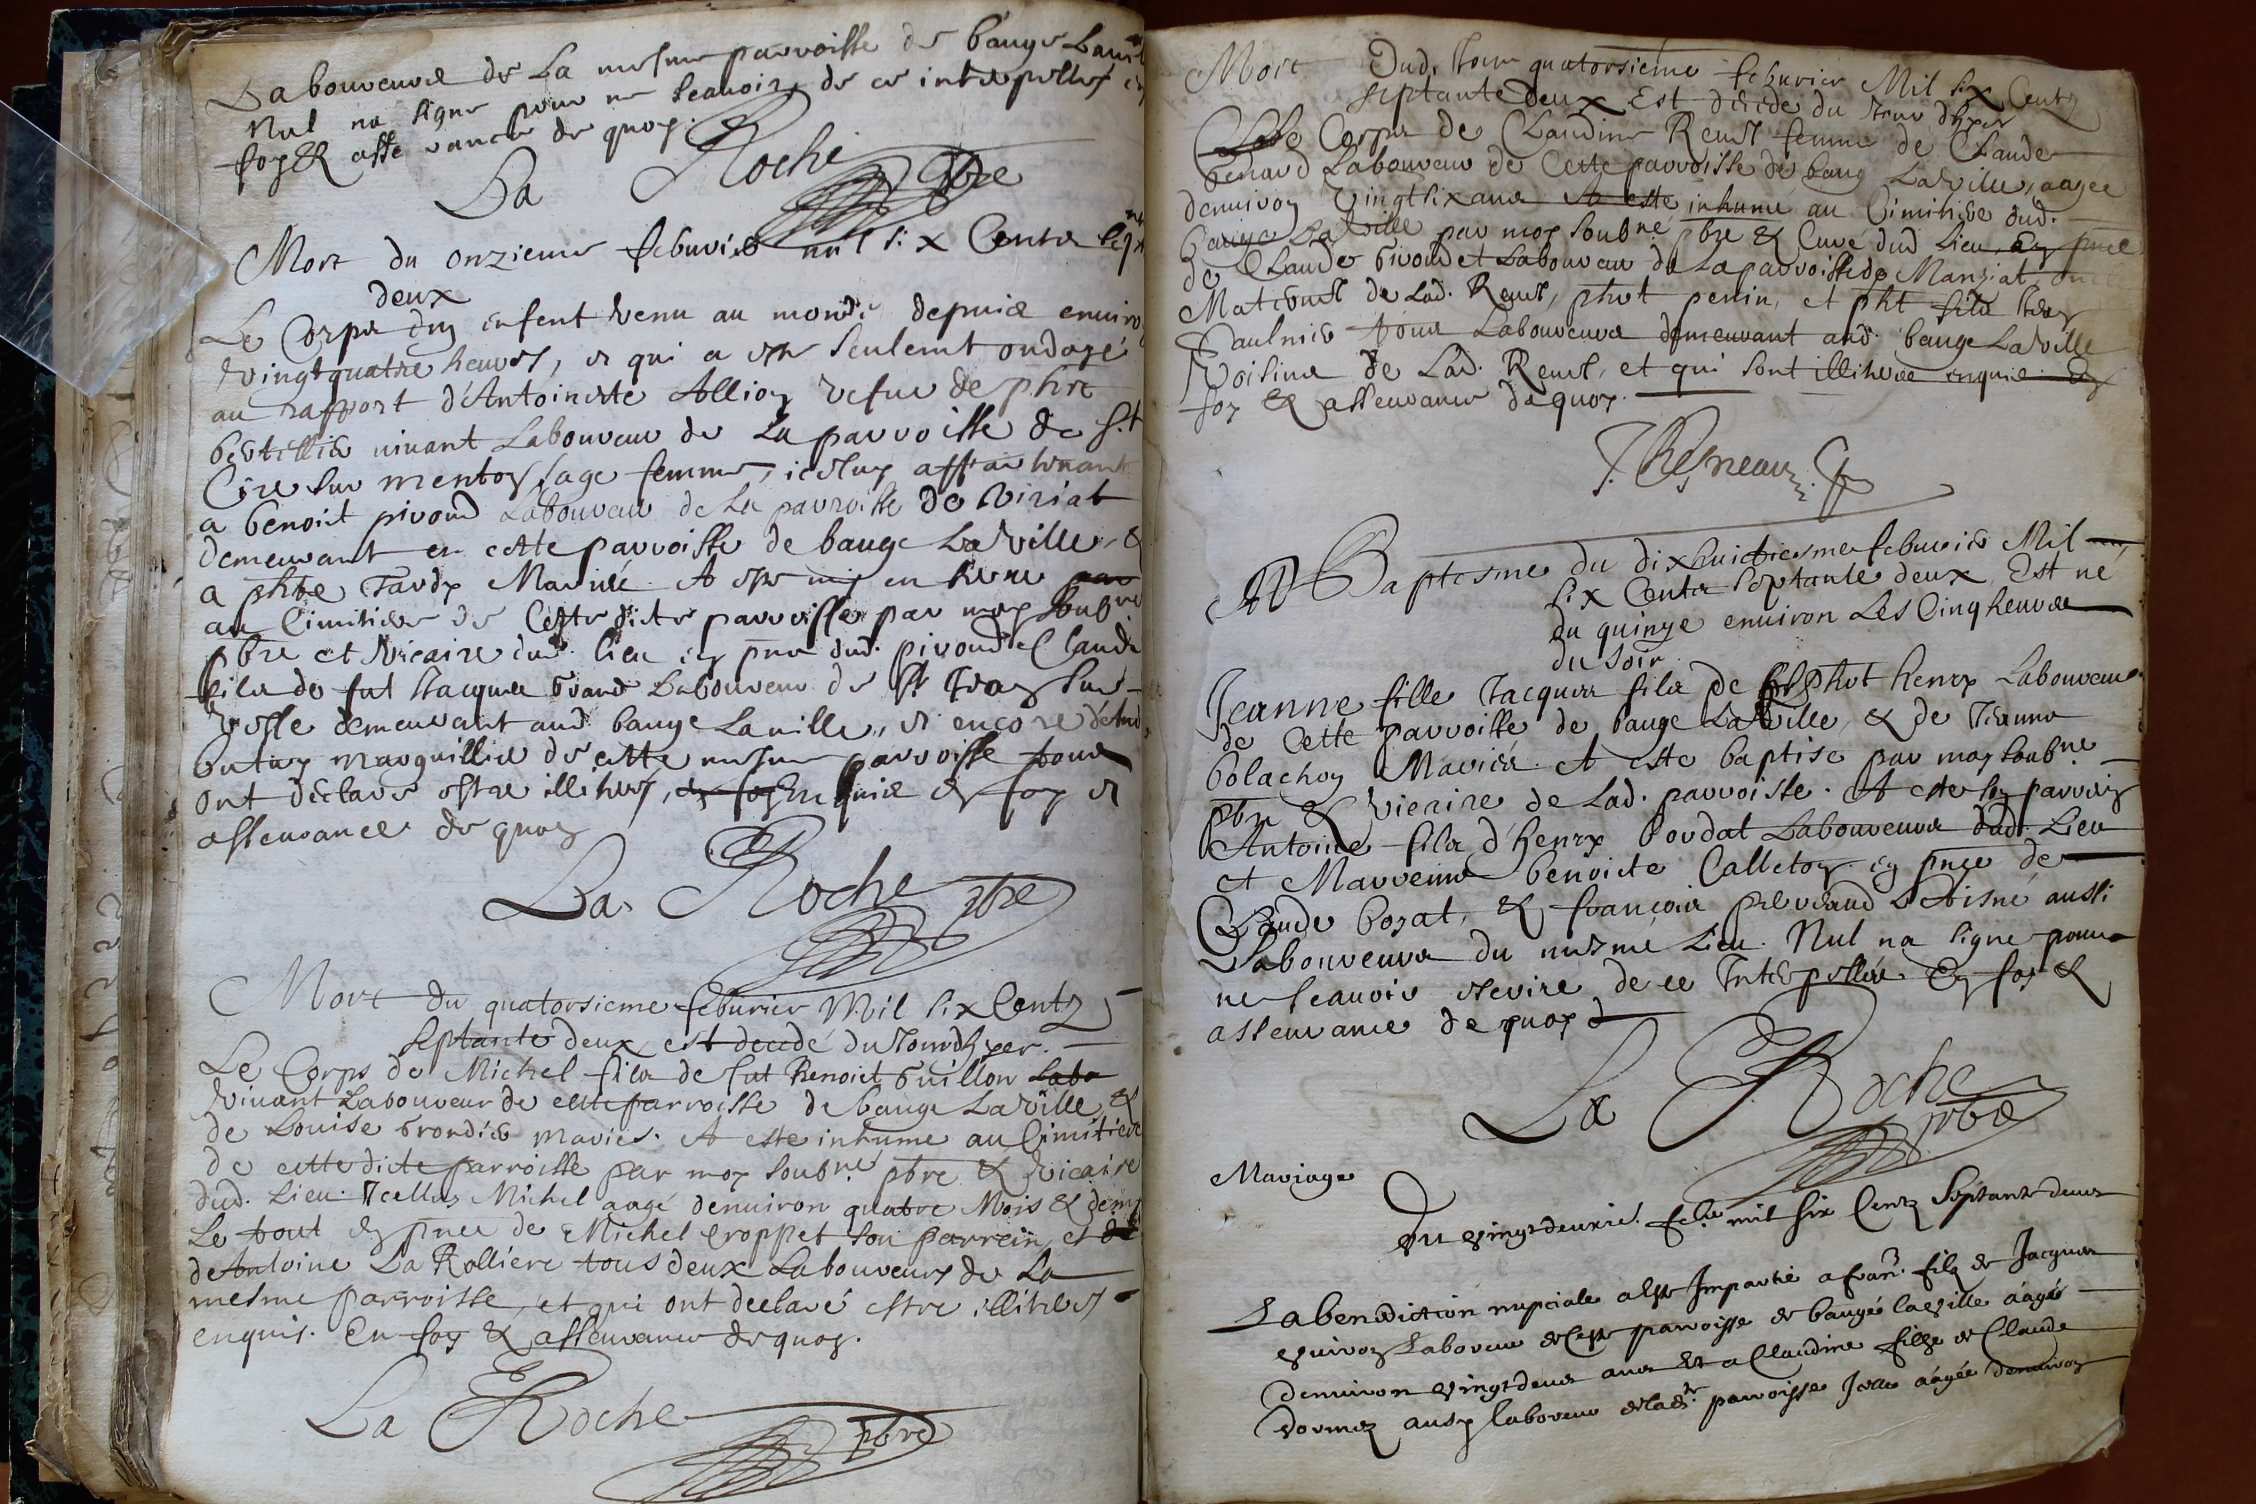 Labouveurs de La mesme parroisse de bauge Laville
Nul na signe pour ne scauoir, de ce interpelles en
foy & asseurance de quoy.
La Roche pbre
Mort du onzieme feburier mil six Cents
deux
Le Corps dun enfent venu au monde depuis enuiron
vingtquatre heures, et qui a este seulemt ondoyé
au rapport d'Antoinette Allion vefue de phbe
viuant Laboureur de La parroisse de St
Cire sur menton sage femme, iceluy appartenant
a benoict piuond Laboureur de La parroisse de Viriat
demeurant en cette parroisse de bauge La Ville, &
a phbe Tardy Mariés. A este mis en terre par
au Cimitiere de Cette dicte parroisse par moy soubne
pbre et Vicaire dud. lieu en pnce dud. piuond Claude
fils de fut Jacques Laboureur de St Jean sur
vesle demeurant aud bauge Laville, et encore d'
marguillier de cette mesme parroisse tous
ont declare estre illiteres, en foy enquis en foy et
asseurance de quoy
La Roche pbre
Mort du quatorsieme feburier Mil six Cents
septante deux est decedé du Jourdhyer.
Le Corps de Michel fils de fut Benoict Guillon Labo
viuant Laboureur de cette parroisse de bauge La Ville &
de Louise mariés. A este inhume au Cimitiere
de cette dicte parroisse par moy soubne pbre & vicaire
dud. Lieu. Icelluy Michel aagé denuiron quatre Mois & demy
Le tout en pnce de Michel Croppet son parrein, et de
de Antoine La Rolliere tous deux Laboureurs de La
mesme parroisse, et qui ont declaré estre illiteres
enquis. En foy & asseurance de quoy.
La Roche pbre
Mort Dud. Jour quatorsieme feburier Mil six Cents
septante deux Est decede du Jour dhyer
Le Corps de Claudine Reust femme de Claude
Laboureur de Cette parroisse de baug LaVille, aagee
denuiron Vingtsix ans A esté inhume au Cimitiere dud.
bauge La Ville par moy soubné pbre & Curé dud Lieu, En pnce
de Claude Laboureur de La parroisse de Manziat
de Lad. Reust, phbt perrin, et pht fils Jean
Paulmier tous Laboureurs demeurant aud. bauge La Ville
Voisins de Lad. Reust, et qui sont illiteres enquis. En
foy & asseurance de quoy.
Baptesme du dixhuictiesme feburier Mil
six Cents septante deux, Est né
du quinze enuiron Les Cinq heures
du Soir.
Jeanne fille Jacques fils de Phbt henry Laboureur
de Cette parroisse de bauge La Ville, & de Jeanne
bolachon Mariés. A esté baptisé par moy soubne.
pbre & Vicaire de Lad. parroisse. A este son parrein
Antoine fils d'henry Laboureurs dud. Lieu
et Marreine benoiste Calleton en pnce de
Claude bozat, & françois L'Aisné aussi
Laboureurs du mesme Lieu. Nul na signe pour
ne scauoir escrire de ce Interpellés En foy &
asseurance de quoy
La Roche pbre
Mariage
Du vingtdeuxie. feb. mil six Cents Septante deux
La benediction nupciale a este Impartie a fran. fils de Jacques
Laboureur de Ceste parroisse de baugé la Ville aagé
denuiron vingtdeux ans Et a Claudine fille de Claude
aussy laboureur de lade. parroisse Icelle aagée denuiron